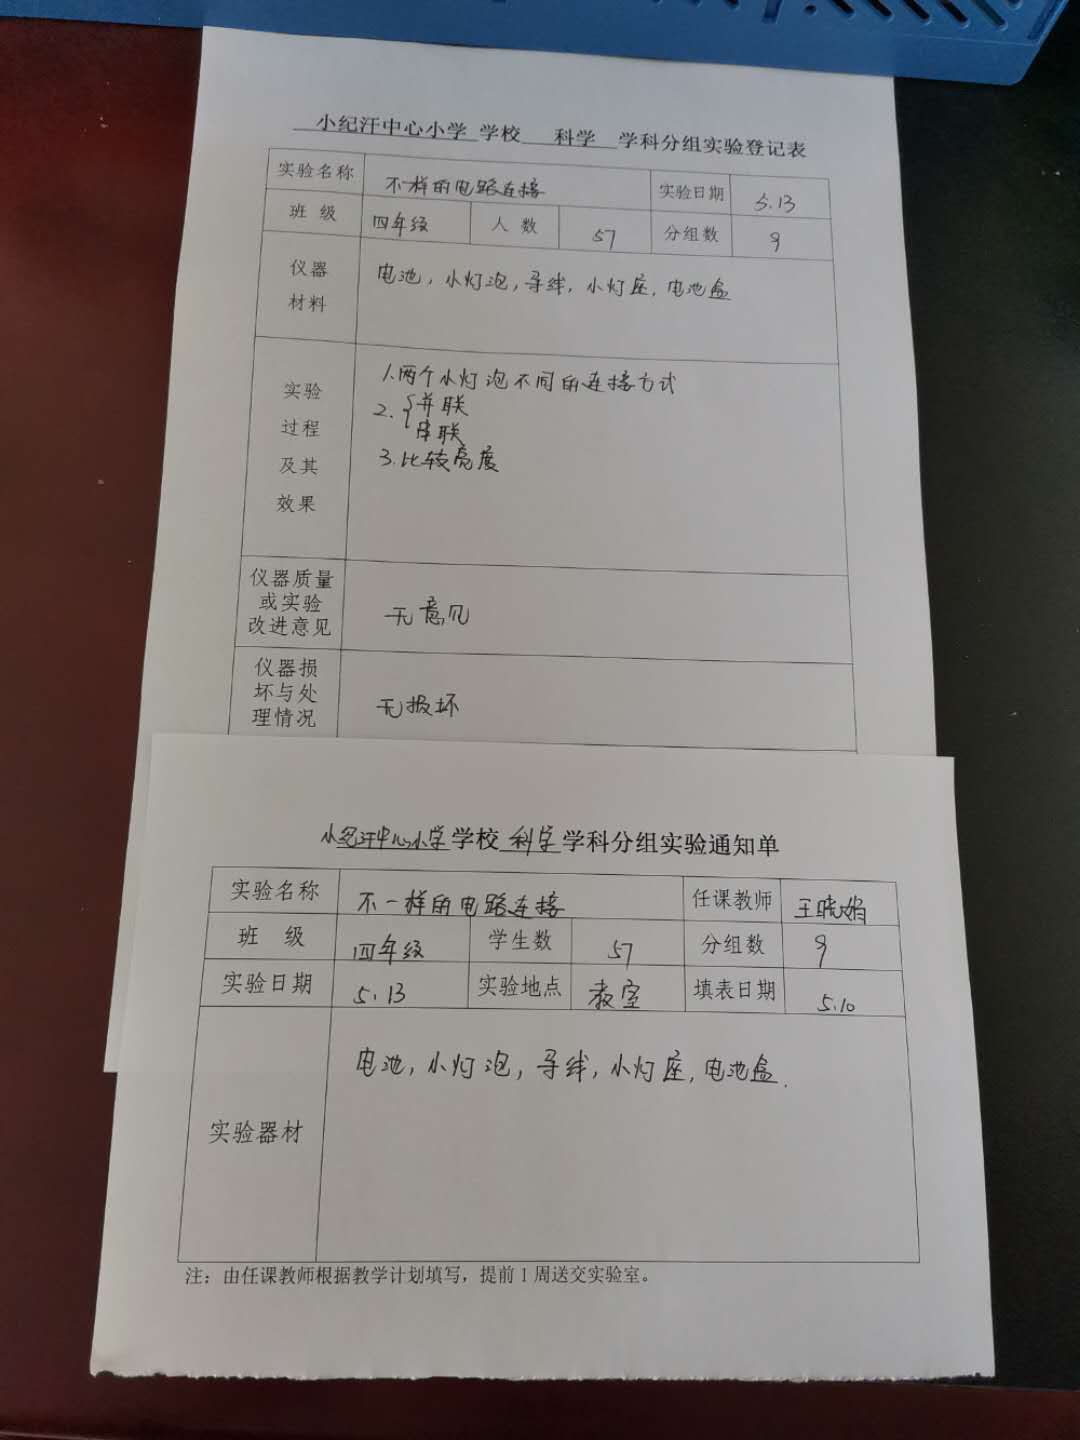 小纪汗中心小学 学校 科学 学科分组实验登记表
实验名称 不一样的电路连接 实验日期 5.13
班 级 四年级 人 数 57 分组数 9
仪器 电池，小灯泡，导线，小灯座，电池盒
材料
1.两个小灯泡不同的连接方式
实验 2.{并联
过程 串联
及其 3.比较亮度
效果
仪器质量
或实验 无意见
改进意见
仪器损
坏与处 无损坏
理情况
小纪汗中心小学学校 科学 学科分组实验通知单
实验名称 不一样的电路连接 任课教师 王晓娟
班 级 四年级 学生数 57 分组数 9
实验日期 5.13 实验地点 教室 填表日期 5.10
电池，小灯泡，导线，小灯座，电池盒.
实验器材
注：由任课教师根据教学计划填写，提前1周送交实验室。